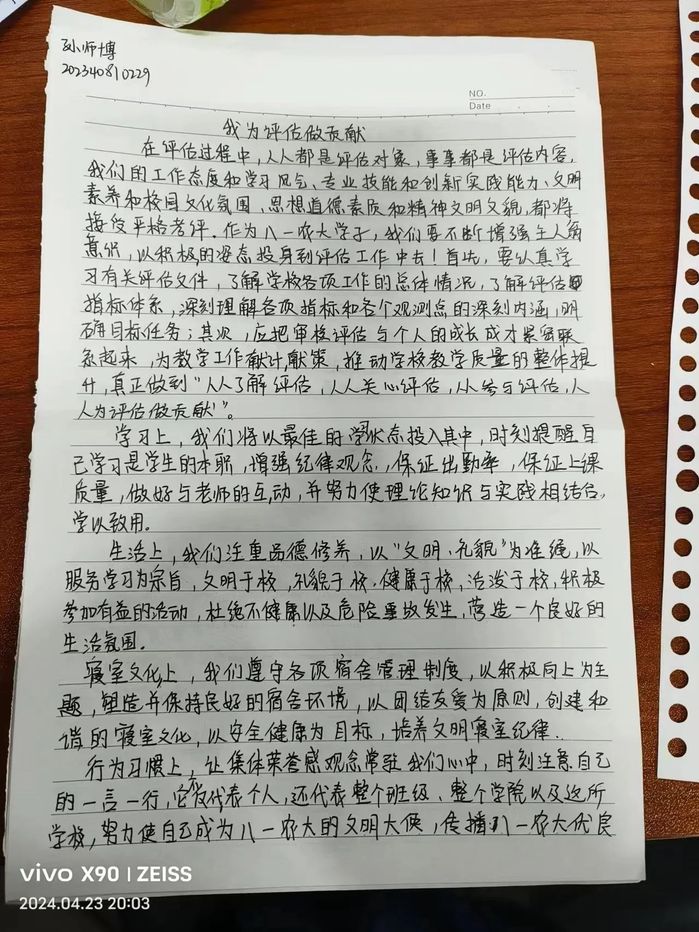 孙师博
202340810229
NO.
Date
我为评估做贡献
在评估过程中,人人都是评估对象,事事都是评估内容,
我们的工作态度和学习风气、专业技能和创新实践能力、文明
素养和校园文化氛围、思想道德素质和精神文明文貌,都将
接受严格考评。作为八一农大学子,我们要不断增强主人翁
意识,以积极的姿态投身到评估工作中去!首先,要认真学
习有关评估文件,了解学校各项工作的总体情况,了解评估
指标体系,深刻理解各项指标和各个观测点的深刻内涵,明
确目标任务;其次,应把审核评估与个人的成长成才紧密联
系起来,为教学工作献计献策,推动学校教学质量的整体提
升,真正做到“人人了解评估,人人关心评估,人人参与评估,人
人为评估做贡献”。
学习上,我们将以最佳的学状态投入其中,时刻提醒自
己学习是学生的本职,增强纪律观念,保证出勤率,保证上课
质量,做好与老师的互动,并努力使理论知识与实践相结合,
学以致用.
生活上,我们注重品德修养,以“文明、礼貌”为准绳,以
服务学习为宗旨,文明于校,礼貌于校,健康于校,活泼于校,积极
参加有益的活动,杜绝不健康以及危险事故发生,营造一个良好的
生活氛围.
寝室文化上,我们遵守各项宿舍管理制度,以积极向上为主
题,塑造并保持良好的宿舍环境,以团结友爱为原则,创建和
谐的寝室文化,以安全健康为目标,培养文明寝室纪律.
行为习惯上,让集体荣誉感观念常驻我们心中,时刻注意自己
的一言一行,它不仅代表个人,还代表整个班级、整个学院以及这所
学校,努力使自己成为八一农大的文明大使,传播八一农大优良
vivo X90 | ZEISS
2024.04.23 20:03